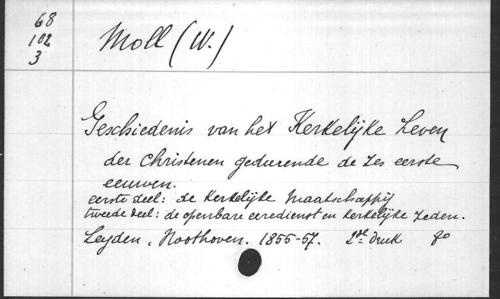 68
102
3
Moll (W.)
Geschiedenis van het Kerkelijke Leven
der Christenen gedurende de zes eerste
eeuwen.
eerste deel: de Kerkelijke Maatschappij
tweede deel: de openbare eeredienst en kerkelijke zeden.
Leyden, Noothoven. 1855-57. 2de druk 8o